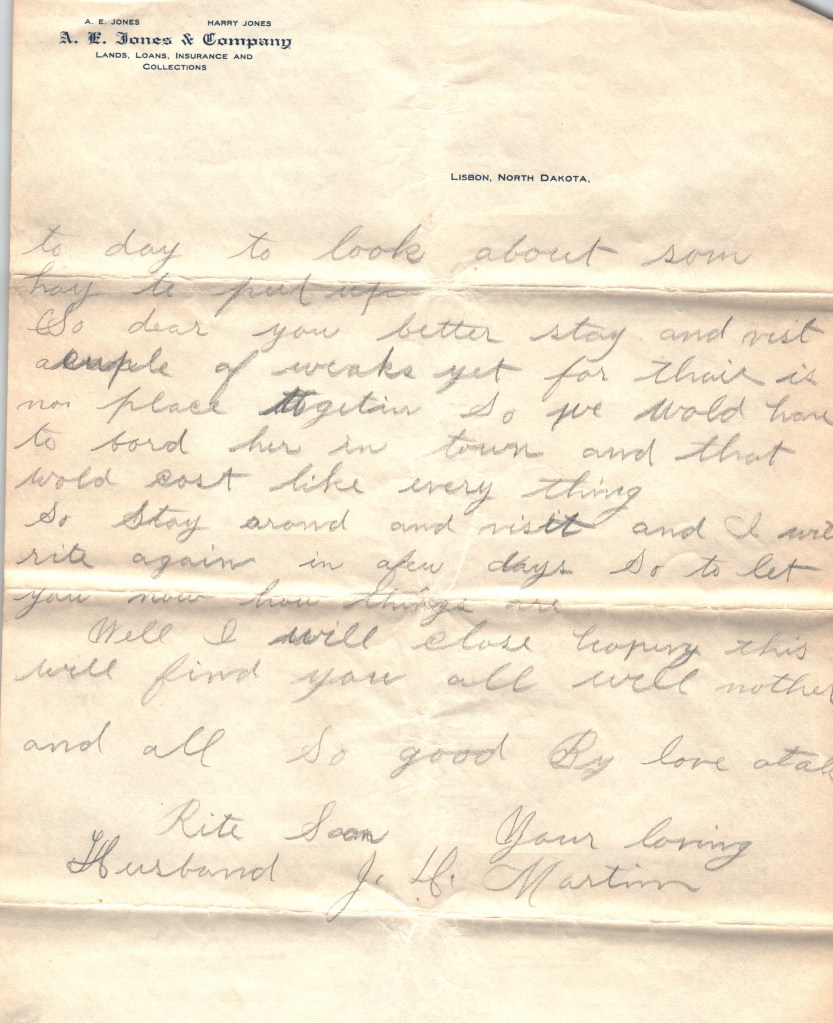 A. E. JONES HARRY JONES
A. E. Jones & Company
LANDS, LOANS, INSURANCE AND
COLLECTIONS
LISBON, NORTH DAKOTA,
to day to look about som
hay to put up
So dear you better stay and visit
a cuple of weaks yet for thair is
no place So we wold have
to bord her in town and that
wold cost like every thing
So Stay arond and visit and I will
rite again in a few days So to let
you now how things are
Well I will close hoping this
will find you all well mother
and all So good By love
Rite Soon Your loving
Husband J. H. Martin